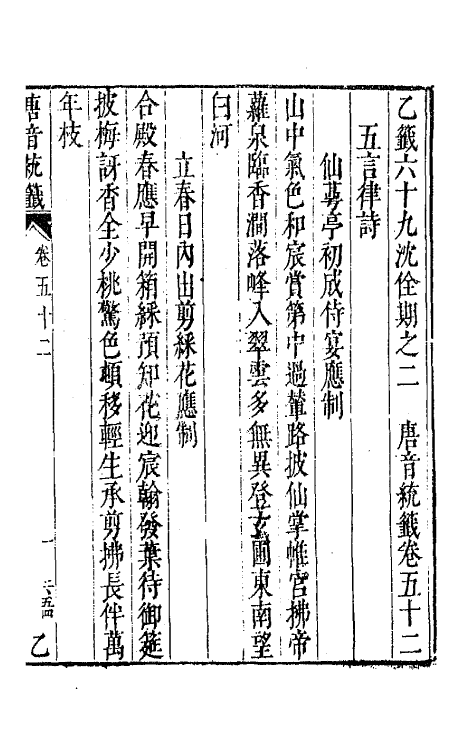 乙籤六十九沈佺期之二　唐音統籤卷五十二
五言律詩
仙萼亭初成侍宴應制
山中氣色和宸賞第中過輦路披仙掌帷宮拂帝
蘿泉臨香澗落峰入翠雲多無異登玄圃東南望
白河
立春日內出剪綵花應制
合殿春應早開箱綵預知花迎宸翰發葉待御筵
披梅訝香全少桃驚色頓移輕生承剪拂長伴萬
年枝
唐音統籤
卷五十二
一
乙